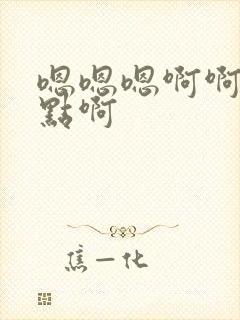 嗯嗯嗯啊啊
點啊
焦一化